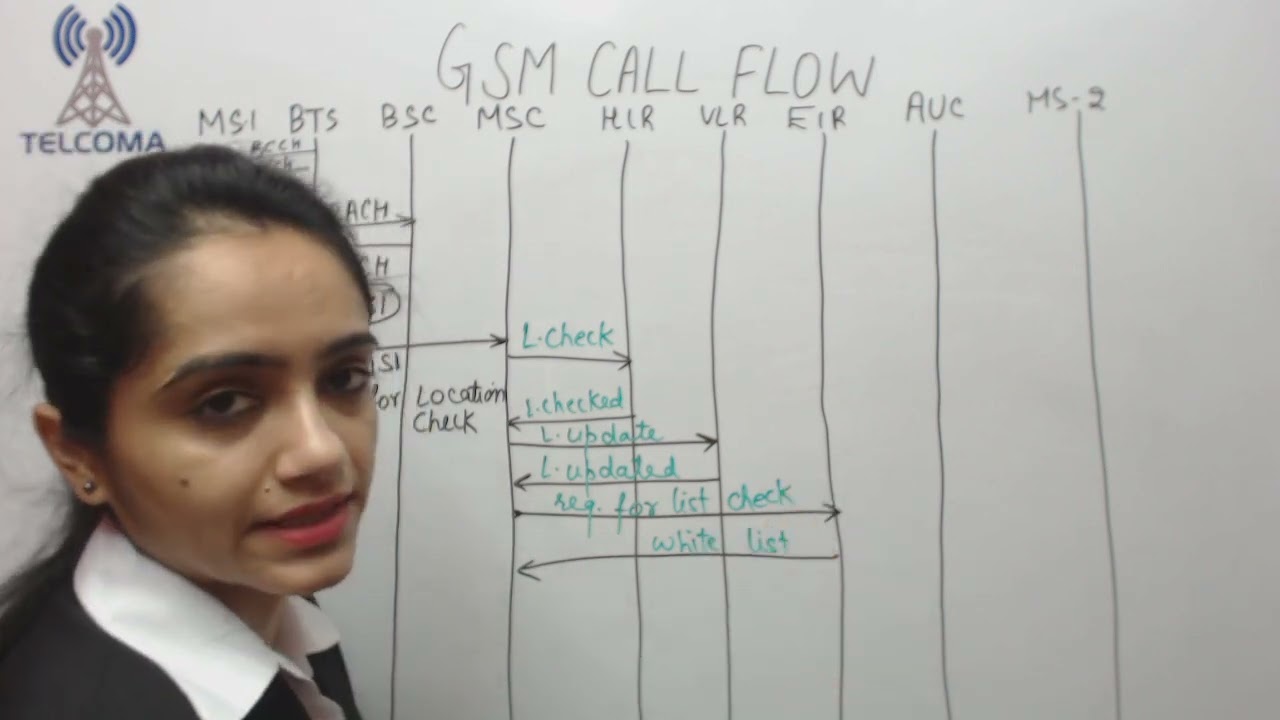 GSM CALL FLOW
TELCOMA
MS1 BTS BSC MSC HLR VLR EIR AUC MS-2
BCCH
ACH
CH
L.check
SI
for Location
Check
L.checked
L.update
L.updated
req. for list check
white list